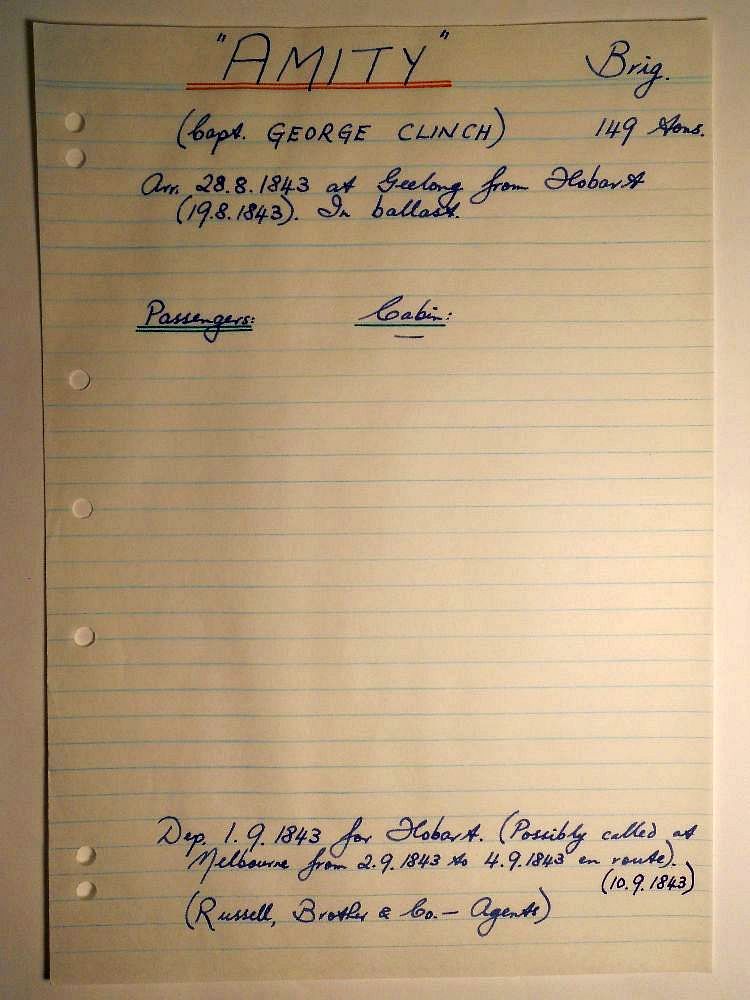 "AMITY" Brig.
(Capt. GEORGE CLINCH) 149 tons.
Arr. 28.8.1843 at Geelong from Hobart
(19.8.1843). In ballast.
Passengers: Cabin:
—
Dep. 1.9.1843 for Hobart. (Possibly called at
Melbourne from 2.9.1843 to 4.9.1843 en route).
(10.9.1843)
(Russell, Brother & Co. — Agents)